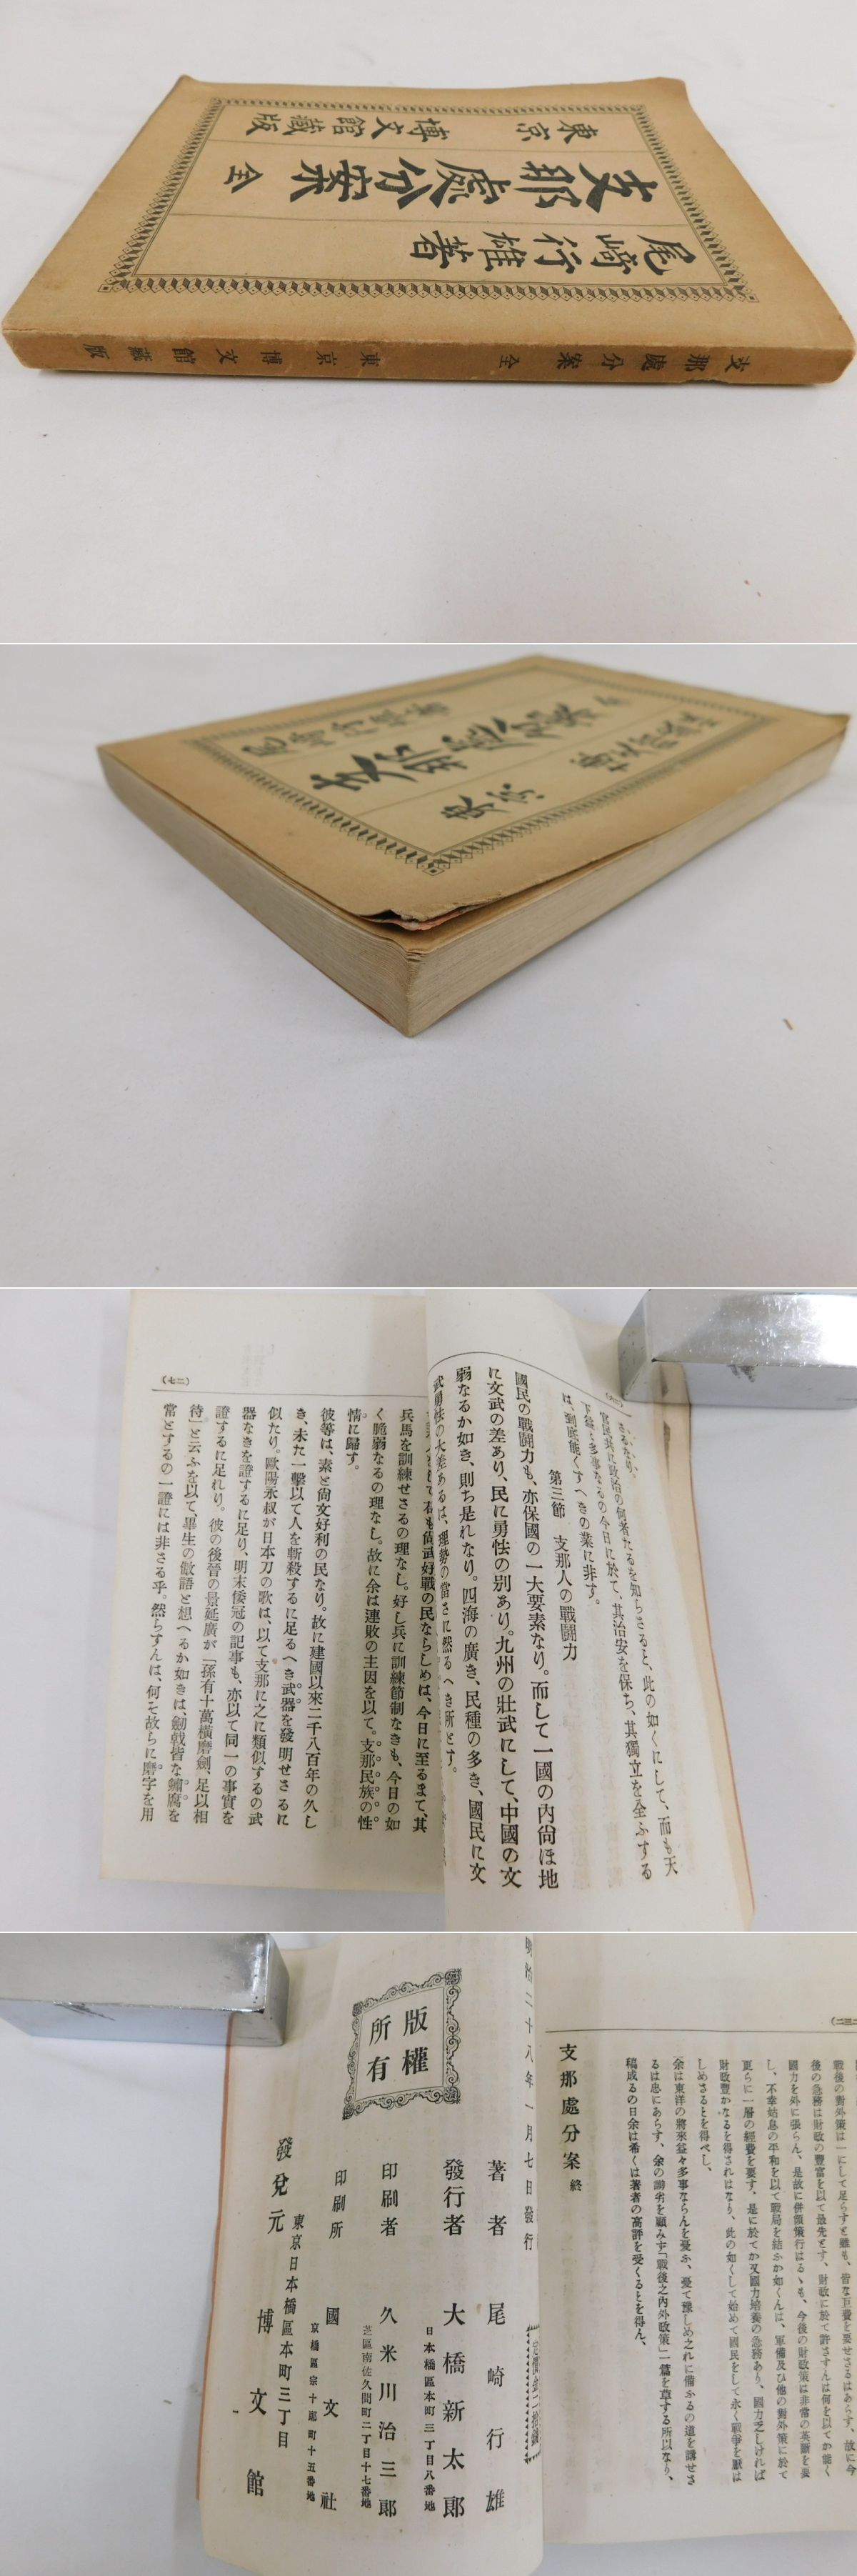 尾崎行雄著
支那處分案 全
東京 博文館藏版
支那處分案 全 東京 博文館藏版
尾崎行雄著
支那處分案 全
東京 博文館藏版
は、到底能くすへきの業に非す。
第三節 支那人の戰鬪力
國民の戰鬪力も、亦保國の一大要素なり。而して一國の內尙ほ地
に文武の差あり、民に勇怯の別あり。九州の壯武にして、中國の文
弱なるか如き、則ち是れなり。四海の廣き、民種の多き、國民に文
武勇怯の大差あるは、理勢の當さに然るへき所とす。
(七二)
兵馬を訓練せさるの理なし。好し兵に訓練節制なきも、今日の如
く脆弱なるの理なし。故に余は連敗の主因を以て。支那民族の性
情に歸す。
彼等は、素と尙文好利の民なり。故に建國以來二千八百年の久し
き、未た一擊以て人を斬殺するに足るへき武器を發明せさるに
似たり。歐陽永叔が日本刀の歌は、以て支那に之に類似するの武
器なきを證するに足り、明末倭冠の記事も、亦以て同一の事實を
證するに足れり。彼の後晉の景延廣が「孫有十萬橫磨劍、足以相
待」と云ふを以て、畢生の傲語と想へるか如きは、劍戟皆な鏽腐を
常とするの一證には非さる乎。然らすんは、何そ故らに磨字を用
戰後の對外策は一にして足らすと雖も、皆な巨費を要せさるはあらす、故に今
後の急務は財政の豐富を以て最先とす、財政に於て許さすんは何を以てか能く
國力を外に張らん、是故に併韻策行はるゝも、今後の財政策は非常の英斷を要
し、不幸姑息の平和を以て戰局を結ふか如くんは、軍備及ひ他の對外策に於て
更らに一層の經費を要す、是に於てか又國力培養の急務あり、國力乏しければ
財政豐かなるを得されはなり、此の如くして始めて國民をして永く戰爭を厭は
しめさるとを得べし、
余は東洋の將來益々多事ならんを憂ふ、憂て豫しめ之れに備ふるの道を講せさ
るは忠にあらす、余の謭劣を顧みす「戰後之內外政策」一篇を草する所以なり、
稿成るの日余は希くは著者の高評を受くるとを得ん、
支那處分案 終
明治二十八年一月七日發行
版權所有
著者 尾崎行雄
發行者 大橋新太郞
日本橋區本町三丁目八番地
印刷者 久米川治三郞
芝區南佐久間町二丁目十七番地
印刷所 國文社
京橋區宗十郞町十五番地
東京日本橋區本町三丁目
發兌元 博文館